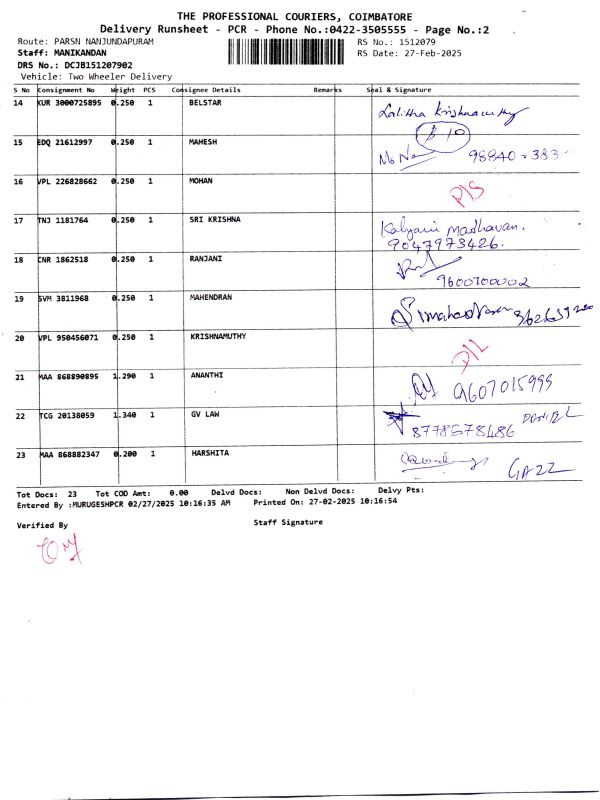 THE PROFESSIONAL COURIERS, COIMBATORE
Delivery Runsheet - PCR - Phone No.:0422-3505555 - Page No.:2
Route: PARSN NANJUNDAPURAM RS No.: 1512079
Staff: MANIKANDAN RS Date: 27-Feb-2025
DRS No.: DCJB151207902
Vehicle: Two Wheeler Delivery
S No Consignment No Weight PCS Consignee Details Remarks Seal & Signature
14 KUR 3000725895 0.250 1 BELSTAR Lalitha Krishnamurthy
B 10
15 EDQ 21612997 0.250 1 MAHESH 98840-383
16 VPL 226828662 0.250 1 MOHAN P/S
17 TNJ 1181764 0.250 1 SRI KRISHNA Kalyani Madhavan.
9047973426.
18 CNR 1862518 0.250 1 RANJANI
9600700002
19 SVM 3811968 0.250 1 MAHENDRAN
20 VPL 950456071 0.250 1 KRISHNAMUTHY D/L
21 MAA 868890895 1.290 1 ANANTHI 9607015999
22 TCG 20138059 1.340 1 GV LAW
8778578486
23 MAA 868882347 0.200 1 HARSHITA
Tot Docs: 23 Tot COD Amt: 0.00 Delvd Docs: Non Delvd Docs: Delvy Pts:
Entered By :MURUGESHPCR 02/27/2025 10:16:35 AM Printed On: 27-02-2025 10:16:54
Verified By Staff Signature